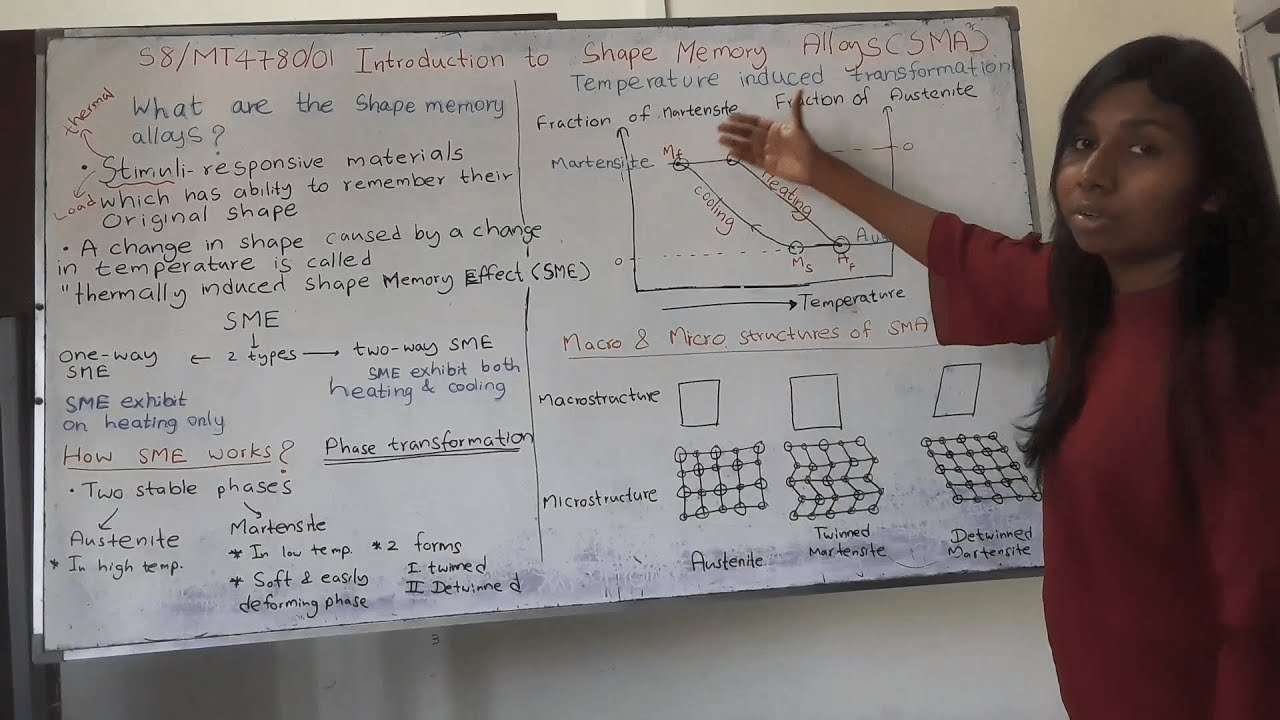 S8/MT4780/01 Introduction to Shape Memory Alloys (SMA)
What are the Shape memory
alloys?
thermal
• Stimuli-responsive materials
which has ability to remember their
Load
Original shape
• A change in shape caused by a change
in temperature is called
"thermally induced shape Memory Effect (SME)
SME
one-way
SME
← 2 types →
two-way SME
SME exhibit both
heating & cooling
SME exhibit
on heating only
How SME works?
Phase transformation
• Two stable phases
Austenite
* In high temp.
Martensite
* In low temp.
* Soft & easily
deforming phase
* 2 forms
I twinned
II Detwinned
Temperature induced transformation
Fraction of Martensite
Fraction of Austenite
Martensite
Mf
0
cooling
Heating
Ms
Af
0
Temperature
Macro & Micro structures of SMA
Macrostructure
Microstructure
Austenite
Twinned
Martensite
Detwinned
Martensite
3